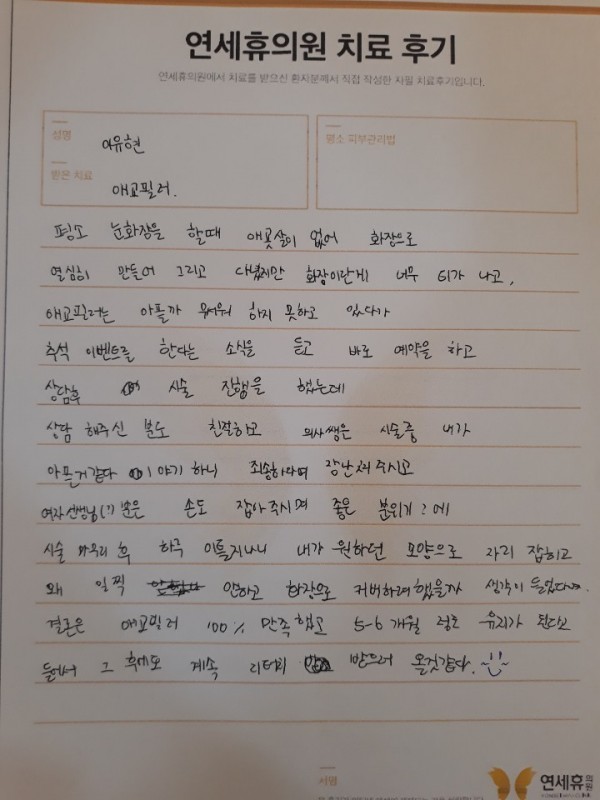 연세휴의원 치료 후기
연세휴의원에서 치료를 받으신 환자분께서 직접 작성한 자필 치료후기입니다.
성명
이유현
평소 피부관리법
받은 치료
애교필러.
평소 눈화장을 할때 애굣살이 없어 화장으로
열심히 만들어 그리고 다녔지만 화장이란게 너무 티가 나고,
애교필러는 아플까 무서워 하지 못하고 있다가
추석 이벤트를 한다는 소식을 듣고 바로 예약을 하고
상담후 시술 진행을 했는데
상담 해주신 분도 친절하고 의사쌤은 시술중 내가
아픈거같다 이야기 하니 죄송하다며 장난쳐주시고
여자선생님(?) 분은 손도 잡아주시며 좋은 분위기?에
시술 마무리 후 하루 이틀지나니 내가 원하던 모양으로 자리 잡히고
왜 일찍 안하고 화장으로 커버하려했을까 생각이 들었다.
결론은 애교필러 100% 만족했고 5-6개월 정도 유지가 된다고
들어서 그 후에도 계속 리터치 받으러 올것같다.
서명
연세휴의원